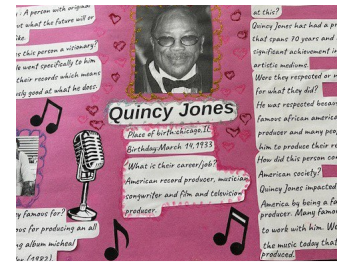 : A person with original
out what the future will or
ike.
s this person a visionary?
le went specifically to him
their records which means
usly good at what he does.
y famous for?
ous for producing an all
ng album micheal
(1982)
Quincy Jones
Place of birth:chicago,Il
Birthday:March 14,1933
What is their career/job?
American record producer, musician,
songwriter and film and television
producer.
at this?
Quincy Jones has had a pr
that spans 70 years and
significant achievement in
artistic mediums.
Were they respected or n
for what they did?
He was respected becau
famous african americ
producer and many peop
him to produce their re
How did this person co
American society?
Quincy Jones impacted
America by being a fa
producer. Many famou
to work with him. We
the music today that
produced.